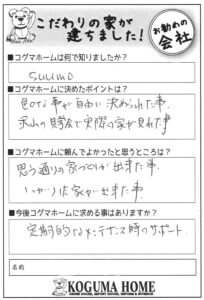 こだわりの家が
建ちました!
お勧めの
会社
■コグマホームは何で知りましたか?
suumo
■コグマホームに決めたポイントは?
色々な事が自由に決められた事.
沢山の見学で実際の家が見れた事
■コグマホームに頼んでよかったと思うところは?
思う通りの家づくりが出来た事.
いい家が出来た事
■今後コグマホームに求める事はありますか?
定期的なメンテナンス時のサポート.
名前
KOGUMA HOME